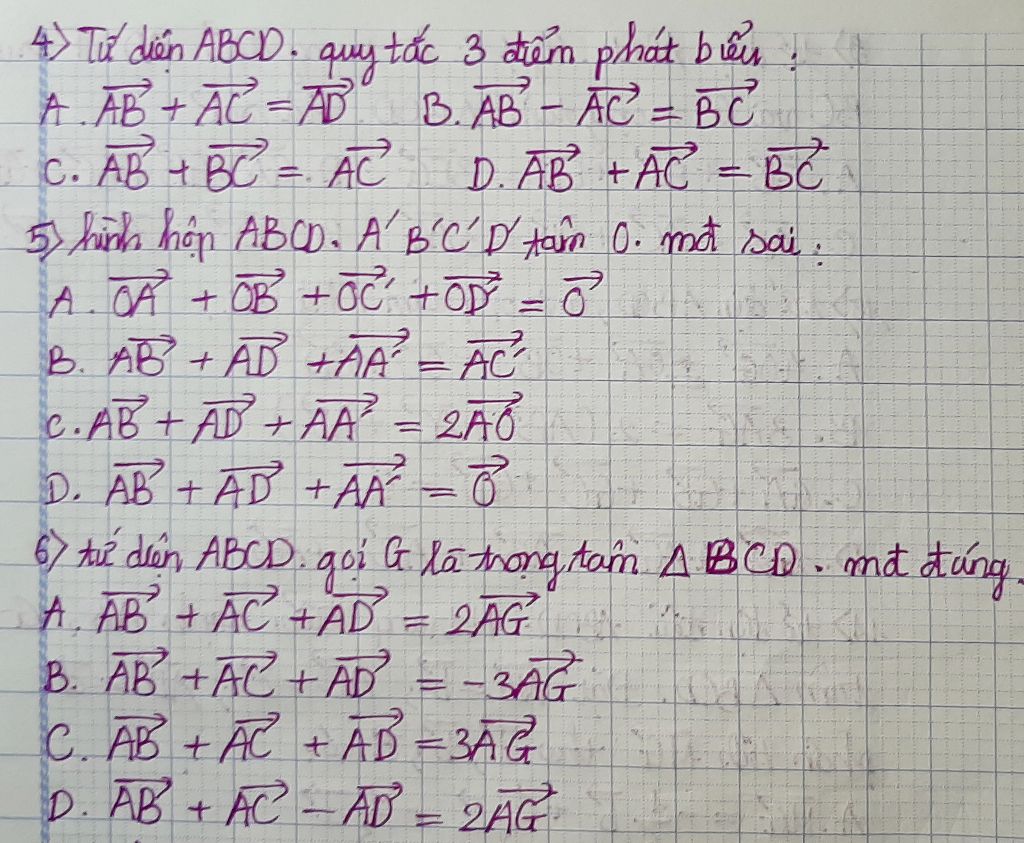 4) Tứ diện ABCD. quy tắc 3 điểm phát biểu :
A. AB⃗ + AC⃗ = AD⃗ B. AB⃗ - AC⃗ = BC⃗
C. AB⃗ + BC⃗ = AC⃗ D. AB⃗ + AC⃗ = BC⃗
5) hình hộp ABCD. A'B'C'D' tâm O. mđ sai :
A. OA⃗ + OB⃗ + OC'⃗ + OD'⃗ = O⃗
B. AB⃗ + AD⃗ + AA'⃗ = AC'⃗
C. AB⃗ + AD⃗ + AA'⃗ = 2AO⃗
D. AB⃗ + AD⃗ + AA'⃗ = O⃗
6) tứ diện ABCD. gọi G là trọng tâm Δ BCD. mđ đúng.
A. AB⃗ + AC⃗ + AD⃗ = 2AG⃗
B. AB⃗ + AC⃗ + AD⃗ = -3AG⃗
C. AB⃗ + AC⃗ + AD⃗ = 3AG⃗
D. AB⃗ + AC⃗ - AD⃗ = 2AG⃗